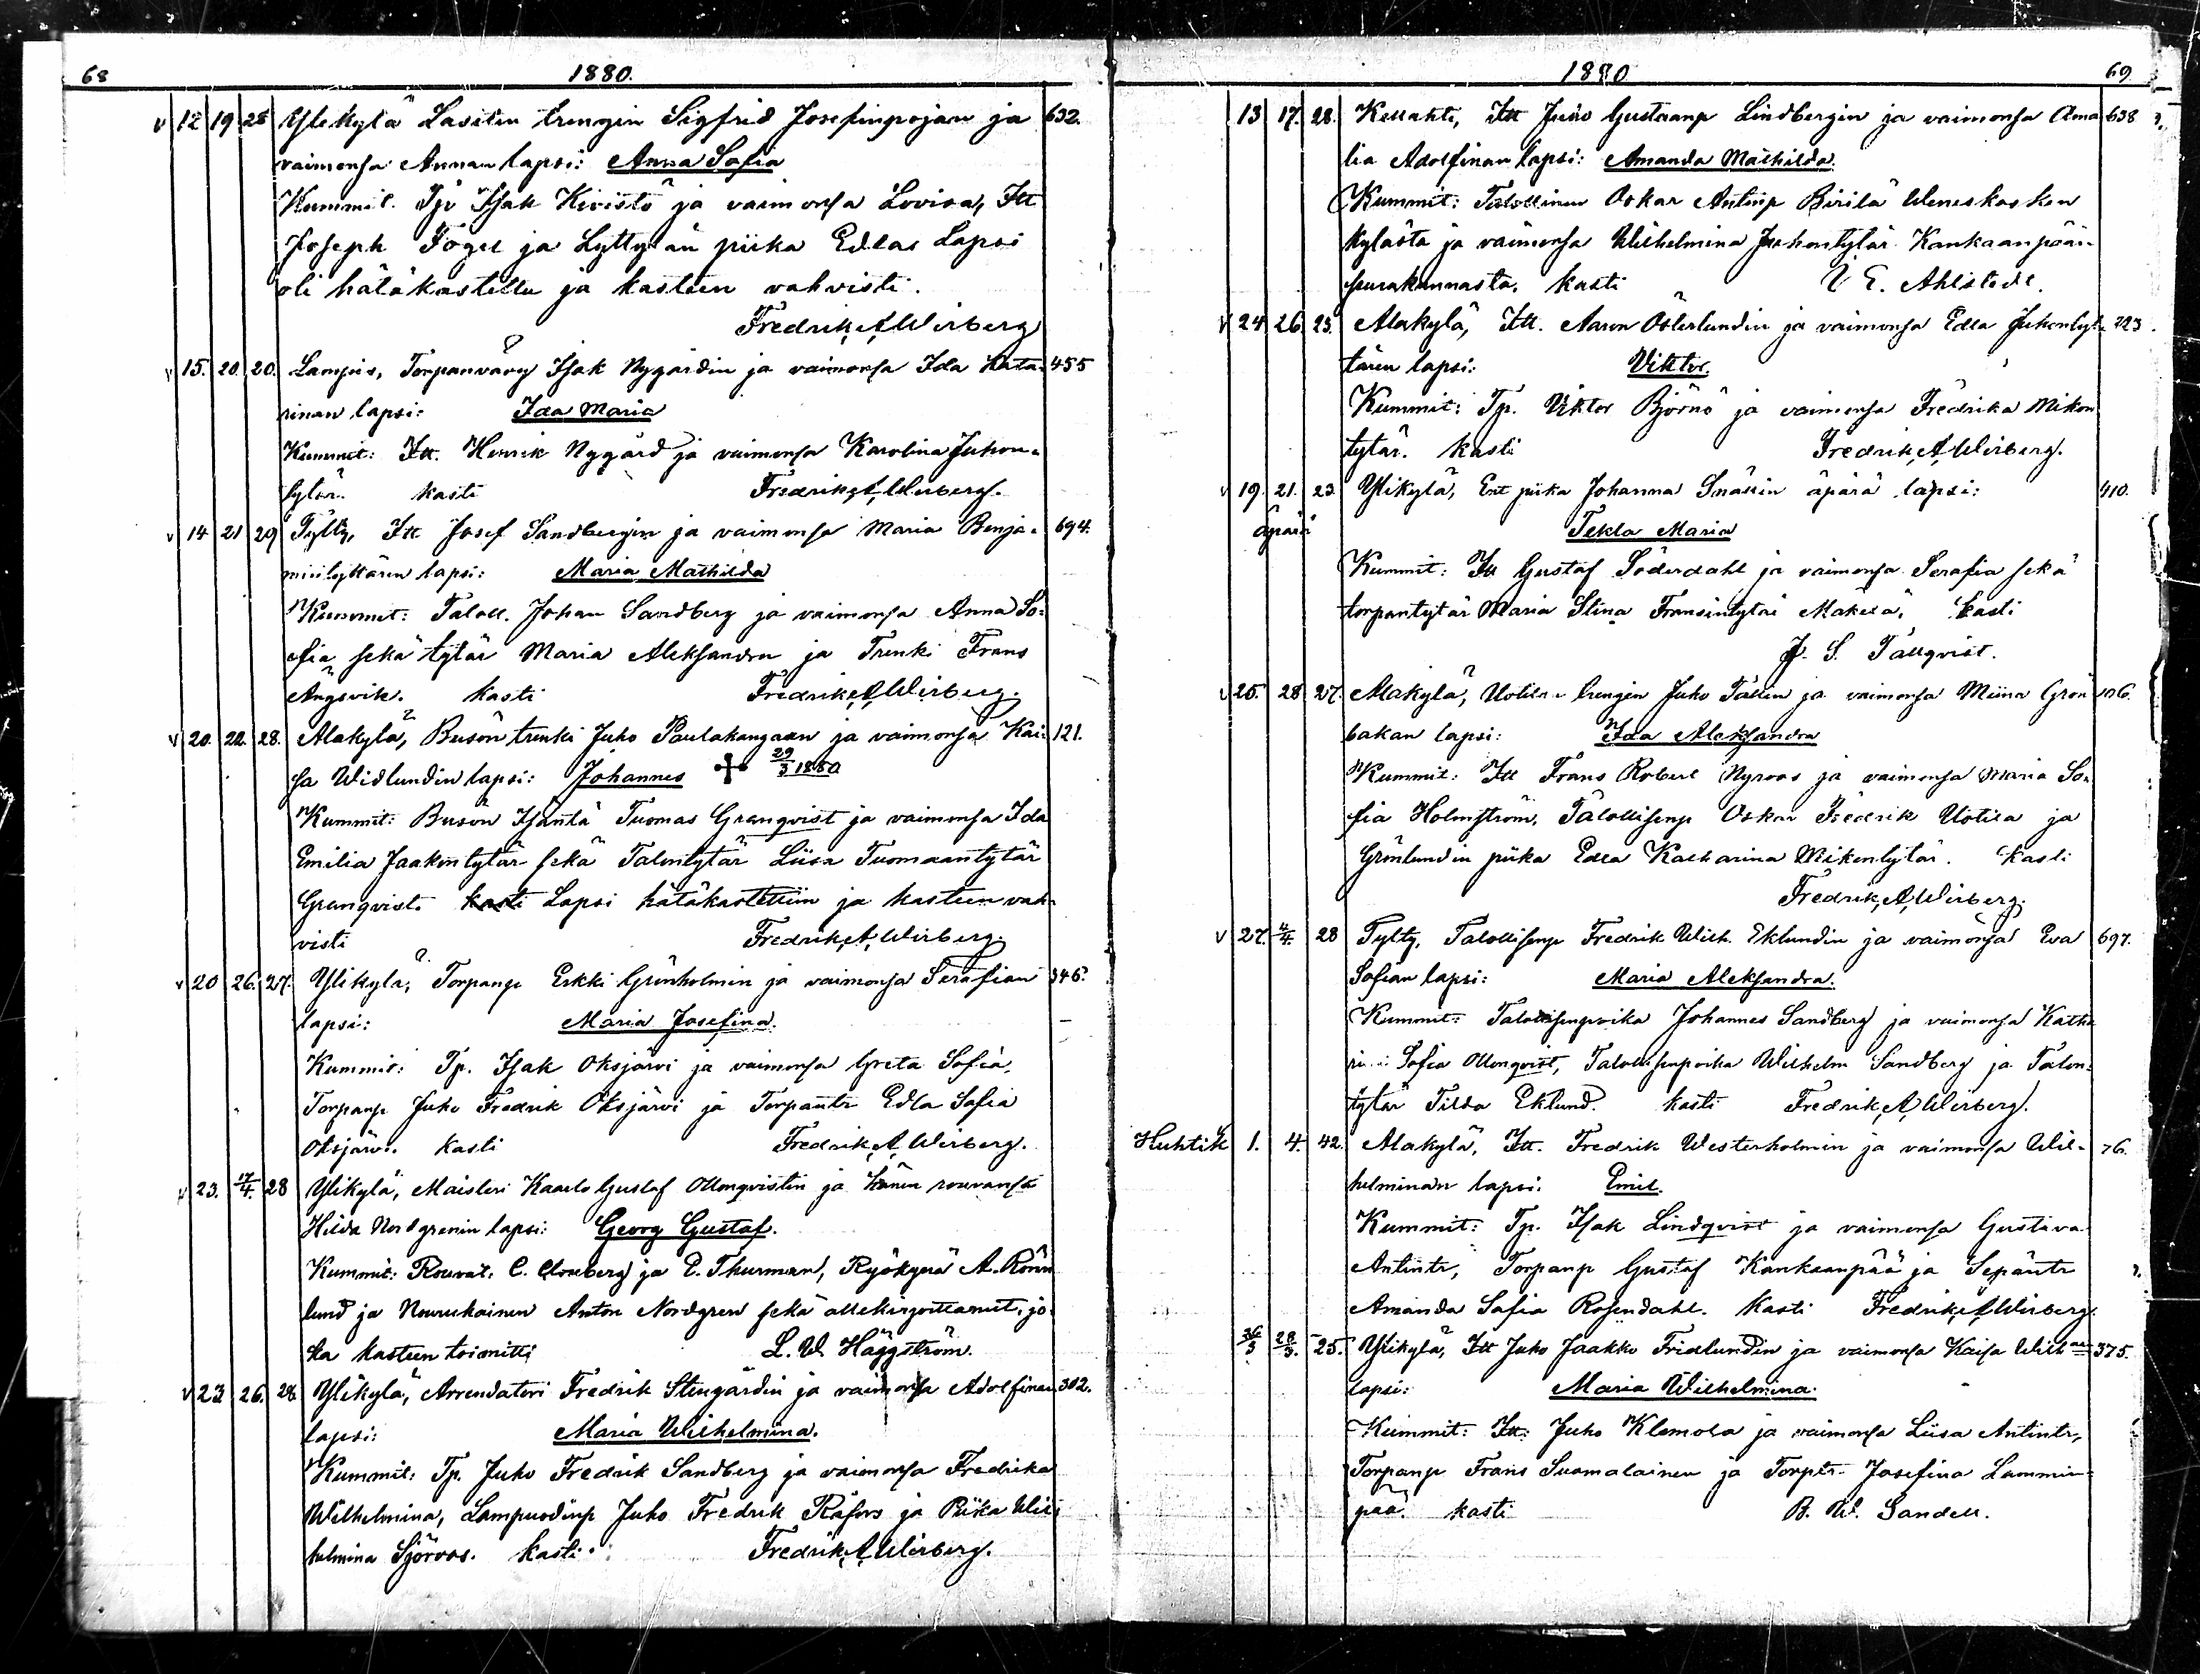 68 1880.
v 12 19 28 Ylikylä Lasiten trengin Sigfrid Josefinpojan ja 632.
vaimonsa Annan lapsi: Anna Sofia
Kummit. Isak Kivistö ja vaimonsa Lovisa, Itt
Joseph ja Lyttylän piika Edlas Lapsi
oli hätäkastettu ja kasteen vahvisti.
Fredrik A Wirberg
v 15. 20. 20. Lampis, Torpanväng Isak Nygårdin ja vaimonsa Ida Kata- 455
rinan lapsi: Ida Maria
Kummit: Itt. Henrik Nygård ja vaimonsa Karolina Juhon-
tytär. kasti Fredrik A Wirberg.
v 14 21 29 Tyltty, Itt Josef Sandbergin ja vaimonsa Maria Benja- 694.
miintyttären lapsi: Maria Mathilda
Kummit: Taloll. Johan Sandberg ja vaimonsa Anna So-
fia sekä tytär Maria Aleksandra ja Trenki Frans
Ängsvik. kasti Fredrik A Wirberg.
v 20. 22. 28. Alakylä, Busön trenki Juho Paulakangaan ja vaimonsa Kai- 121.
sa Widlundin lapsi: Johannes 29/3 1880
Kummit: Busön Isäntä Tuomas Granqvist ja vaimonsa Ida
Emilia Jaakontytär sekä Talontytär Liisa Tuomaantytär
Granqvist. kasti Lapsi hätäkastettiin ja kasteen vah-
visti Fredrik A Wirberg.
v 20 26. 27. Ylikylä, Torpanp Erkki Grönholmin ja vaimonsa Serafian 346.
lapsi: Maria Josefina.
Kummit: Tp. Isak Oksjärvi ja vaimonsa Greta Sofia,
Torpanp Juho Fredrik Oksjärvi ja Torpantr Edla Sofia
Oksjärvi. kasti Fredrik A Wirberg.
v 23. 17/4. 28 Ylikylä, Maisteri Kaarlo Gustaf Ollonqvistin ja hänen rouvansa
Hilda Nordgrenin lapsi: Georg Gustaf.
Kummit: Rouvat. C. Cronberg ja E. Thurman, Ryökynä A. Rönn
lund ja Nuorukainen Anton Nordgren sekä allekirjoittanut, jo-
ka kasteen toimitti L. W. Häggström.
v 23 26. 28. Ylikylä, Arrendatori Fredrik Stengårdin ja vaimonsa Adolfinan 302.
lapsi: Maria Wilhelmina.
Kummit: Tp. Juho Fredrik Sandberg ja vaimonsa Fredrika
Wilhelmina, Lampuodinp Juho Fredrik Råfors ja Piika Wil-
helmina Sjöroos. kasti: Fredrik A Wirberg.
1880 69
13 17. 28. Kellahti, Itt Juho Gustaanp Lindbergin ja vaimonsa Ama 638
lia Adolfinan lapsi: Amanda Mathilda.
Kummit: Talollinen Oskar Antinp Pirilä Weneskosken
kylästä ja vaimonsa Wilhelmina Juhontytär Kankaanpään
seurakunnasta. kasti E. Ahlstedt.
v 24 26 23. Alakylä, Itt. Aaron Österlundin ja vaimonsa Edla Juhontyt- 223.
tären lapsi: Viktor.
Kummit: Tp. Viktor Björnö ja vaimonsa Fredrika Mikon
tytär. kasti Fredrik A Wirberg.
v 19. 21. 23. Ylikylä, Ent piika Johanna Snällin äpärä lapsi: 410.
äpärä Tekla Maria
Kummit: Itt Gustaf Söderdahl ja vaimonsa Serafia sekä
torpantytär Maria Stina Fransintytär Mäkelä, kasti
J. S. Tallqvist.
v 25. 28 27. Alakylä, Uotilan trengin Juho Tallin ja vaimonsa Miina Grön 106.
bakan lapsi: Ida Aleksandra
Kummit: Itt Frans Robert Nyroos ja vaimonsa Maria So-
fia Holmström, Talollisenp Oskar Fredrik Uotila ja
Grönlundin piika Edla Katharina Mikontytär. kasti
Fredrik A Wirberg.
v 27. 4/4. 28 Tyltty, Talollisenp Fredrik Wilh. Eklundin ja vaimonsa Eva 697.
Sofian lapsi: Maria Aleksandra.
Kummit: Talollisenpoika Johannes Sandberg ja vaimonsa Katha
rina Sofia Ollonqvist, Talollisenpoika Wilhelm Sandberg ja Talon-
tytär Tilda Eklund. kasti Fredrik A Wirberg.
Huhtik 1. 4. 42. Alakylä, Itt. Fredrik Westerholmin ja vaimonsa Wil- 76.
helminan lapsi: Emil.
Kummit: Tp. Isak Lindqvist ja vaimonsa Gustava
Antintr, Torpanp Gustaf Kankaanpää ja Sepäntr
Amanda Sofia Rosendahl. kasti Fredrik A Wirberg.
26/3 28/3. 25. Ylikylä, Itt Juho Jaakko Fridlundin ja vaimonsa Kaisa Wilh 375.
lapsi: Maria Wilhelmina.
Kummit: Itt: Juho Klemola ja vaimonsa Liisa Antintr,
Torpanp Frans Suomalainen ja Torptr. Josefina Lammin-
pää. kasti B. W. Sandell.